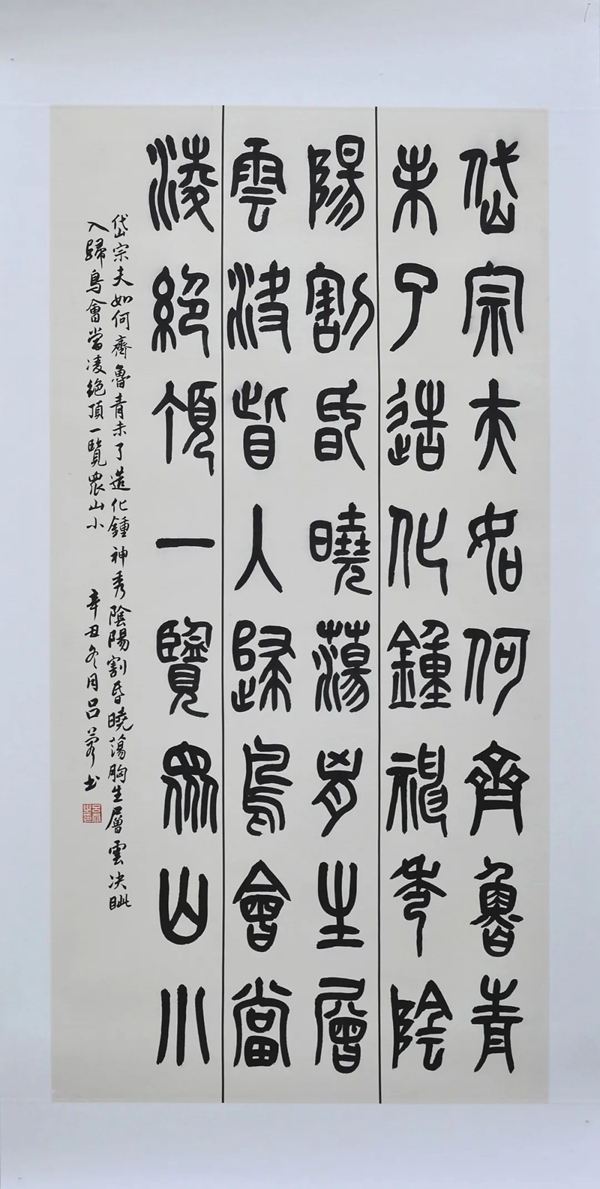 岱宗夫如何齊魯青
未了造化鍾神秀陰
陽割昏曉蕩胸生層
雲決眥入歸鳥會當
淩絕頂一覽眾山小
岱宗夫如何齊魯青未了造化鍾神秀陰陽割昏曉蕩胸生層雲决眦
入歸鳥會當凌絶頂一覽眾山小 辛丑冬月吕书